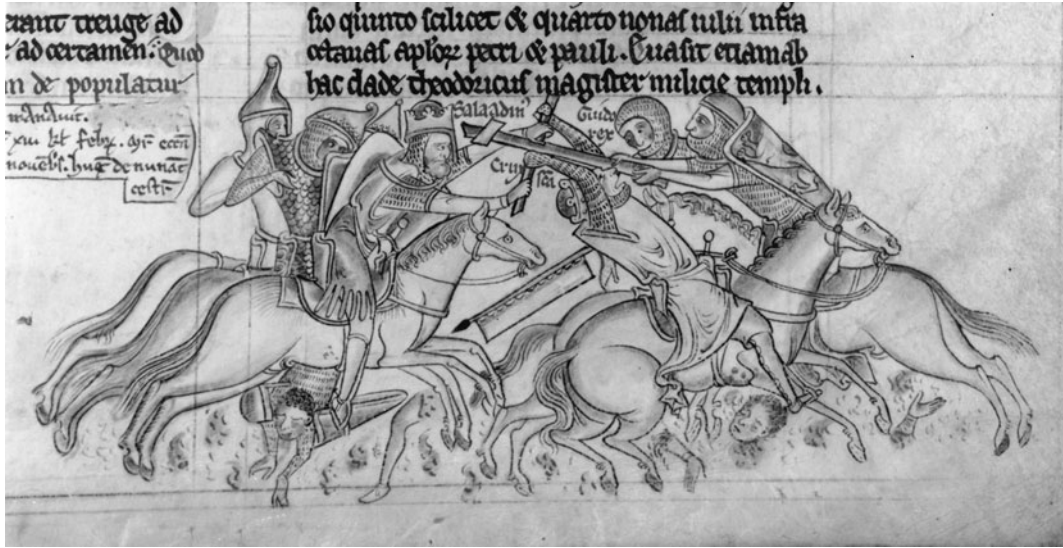 erant treuge ad
ad certamen. Quod
n de populatur
mandavit.
xiii kl febr.
novēbs. hug de nunāt
cestr
sio quinto scilicet & quarto nonas iulii infra
octavas aploꝝ petri & pauli. Euasit etiam ab
hac clade theodoricus magister milicie templi.
Saladin'
Guido
rex
Crux
sc̄a